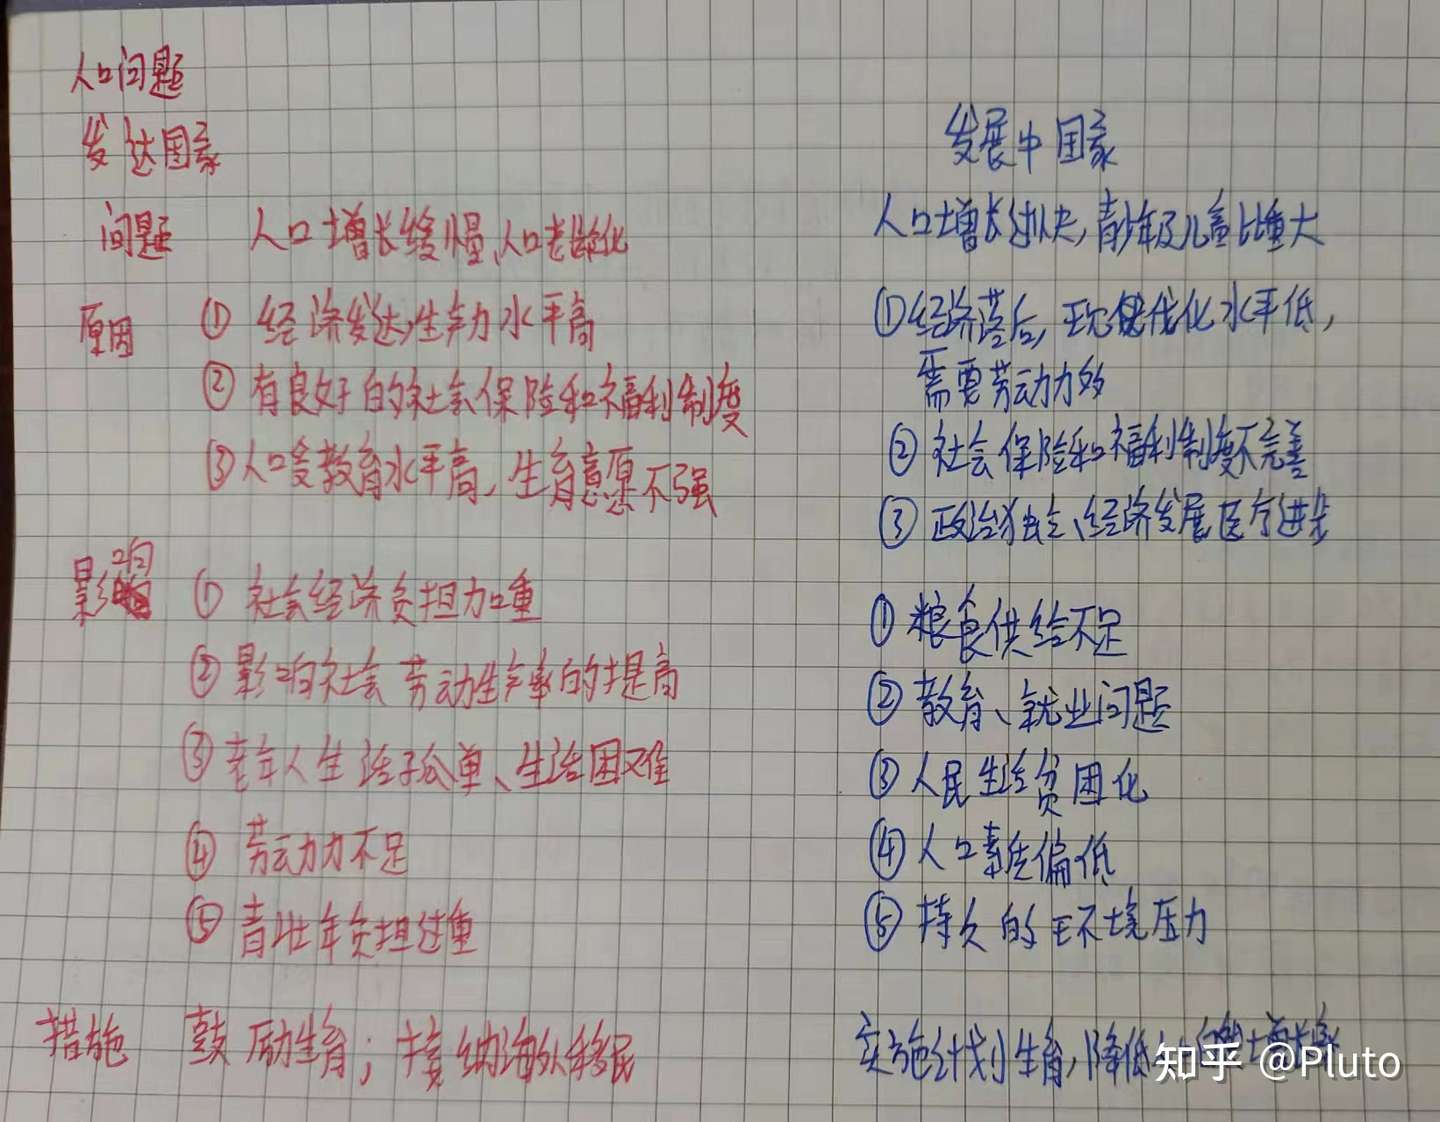 人口问题
发达国家
发展中国家
问题 人口增长缓慢、人口老龄化
人口增长过快,青少年及儿童比重大
原因 ① 经济发达,生产力水平高
② 有良好的社会保险和福利制度
③ 人口受教育水平高,生育意愿不强
① 经济落后,现代化水平低,
需要劳动力多
② 社会保险和福利制度不完善
③ 政治独立、经济发展医疗进步
影响 ① 社会经济负担加重
② 影响社会劳动生产率的提高
③ 老年人生活孤单、生活困难
④ 劳动力不足
⑤ 青壮年负担过重
① 粮食供给不足
② 教育、就业问题
③ 人民生活贫困化
④ 人口素质偏低
⑤ 持久的环境压力
措施 鼓励生育;接纳海外移民
实施计划生育,降低人口自然增长率
知乎 @Pluto